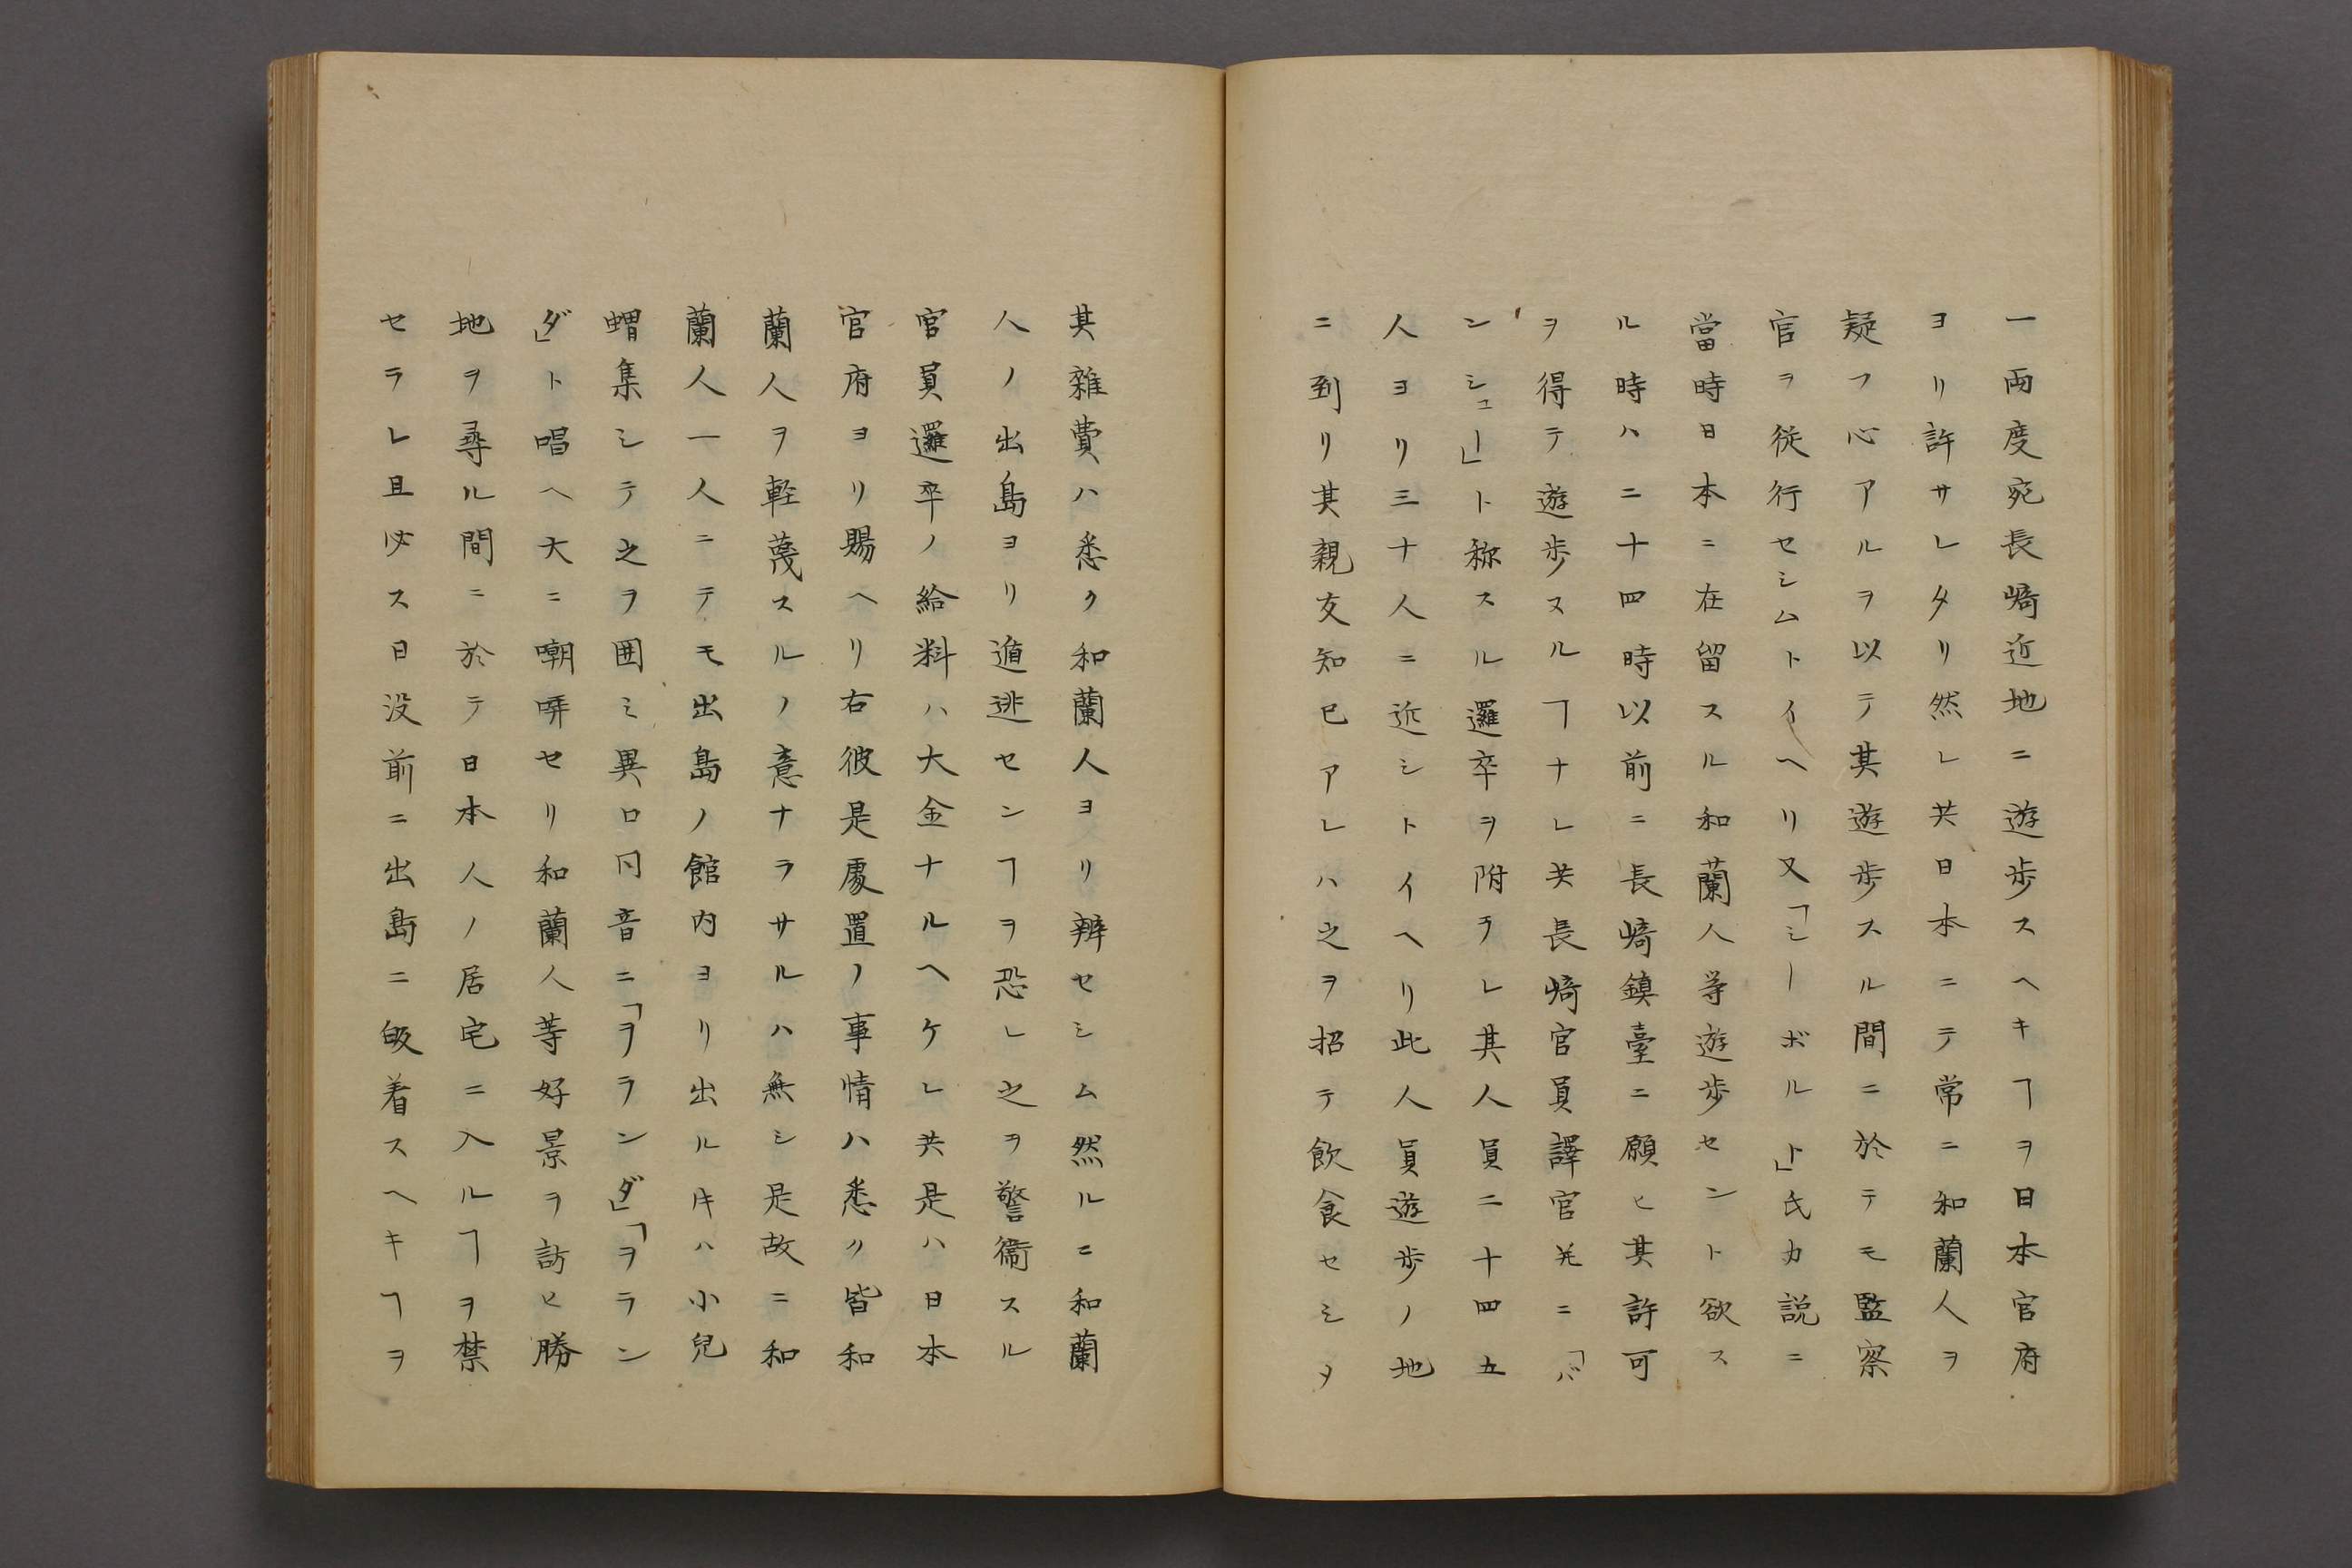 一両度宛長﨑近地ニ遊歩スヘキヿヲ日本官府
ヨリ許サレタリ然レ共日本ニテ常ニ和蘭人ヲ
疑フ心アルヲ以テ其遊歩スル間ニ於テモ監察
官ヲ従行セシムトイヘリ又「シーボルト」氏カ説ニ
當時日本ニ在留スル和蘭人等遊歩セント欲ス
ル時ハ二十四時以前ニ長﨑鎮臺ニ願ヒ其許可
ヲ得テ遊歩スルヿナレ共長﨑官員譯官並ニ「バ
ンシュー」ト称スル邏卒ヲ附ラレ其人員二十四五
人ヨリ三十人ニ近シトイヘリ此人員遊歩ノ地
ニ到リ其親友知已アレハ之ヲ招テ飲食セシメ
其雜費ハ悉ク和蘭人ヨリ辨セシム然ルニ和蘭
人ノ出島ヨリ遁逃センヿヲ恐レ之ヲ警衞スル
官員邏卒ノ給料ハ大金ナルヘケレ共是ハ日本
官府ヨリ賜ヘリ右彼是處置ノ事情ハ悉ク皆和
蘭人ヲ軽蔑スルノ意ナラサルハ無シ是故ニ和
蘭人一人ニテモ出島ノ館内ヨリ出ルキハ小兒
蝟集シテ之ヲ囲ミ異口同音ニ「ヲランダ」「ヲラン
ダ」ト唱ヘ大ニ嘲哢セリ和蘭人等好景ヲ訪ヒ勝
地ヲ尋ル間ニ於テ日本人ノ居宅ニ入ルヿヲ禁
セラレ且必ス日没前ニ出島ニ皈着スヘキヿヲ